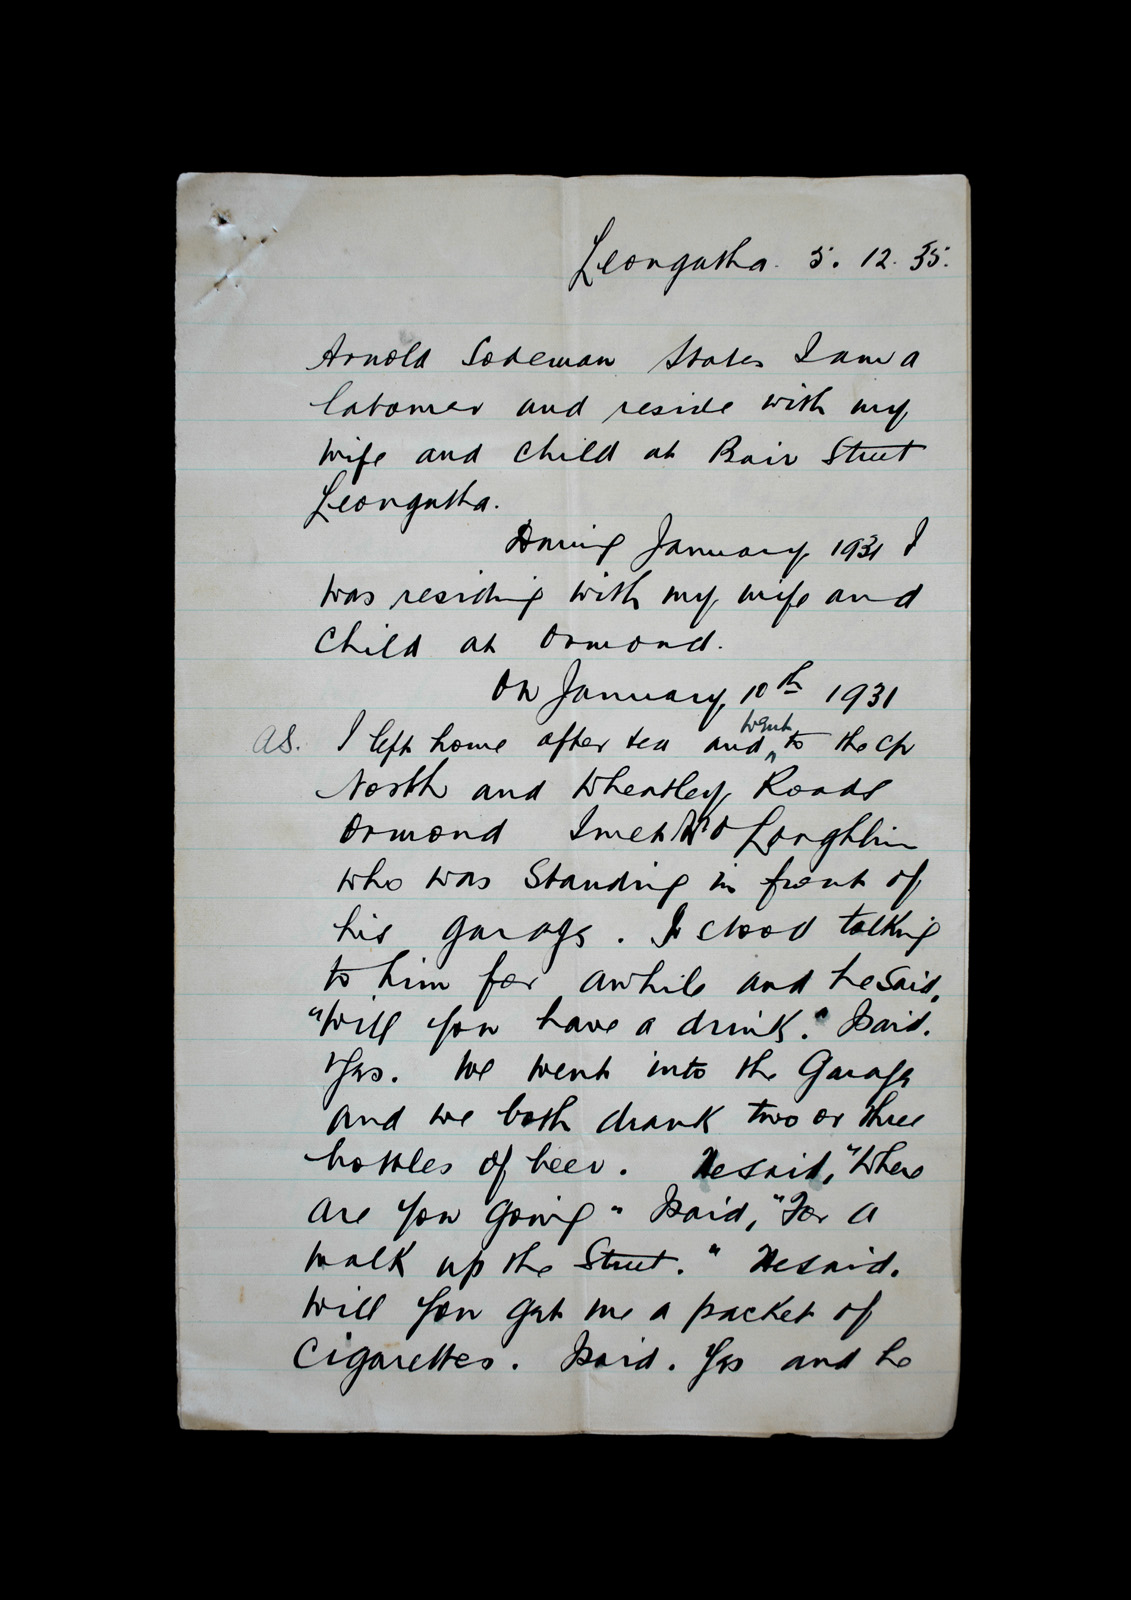 Leongatha. 5. 12. 35.
Arnold Sodeman states I am a
labourer and reside with my
wife and child at Bair Street
Leongatha.
During January 1931 I
was residing with my wife and
child at Ormond.
On January 10th 1931
went
AS. I left home after tea and ^ to the cr
North and Wheatley Roads
Ormond I met Mr O Loughlin
who was standing in front of
his garage. I stood talking
to him for awhile and he said,
"Will you have a drink." I said.
Yes. We went into the Garage
and we both drank two or three
bottles of beer. He said, "Where
are you going" I said, "For a
walk up the Street." He said.
Will you get me a packet of
Cigarettes. I said. Yes and he